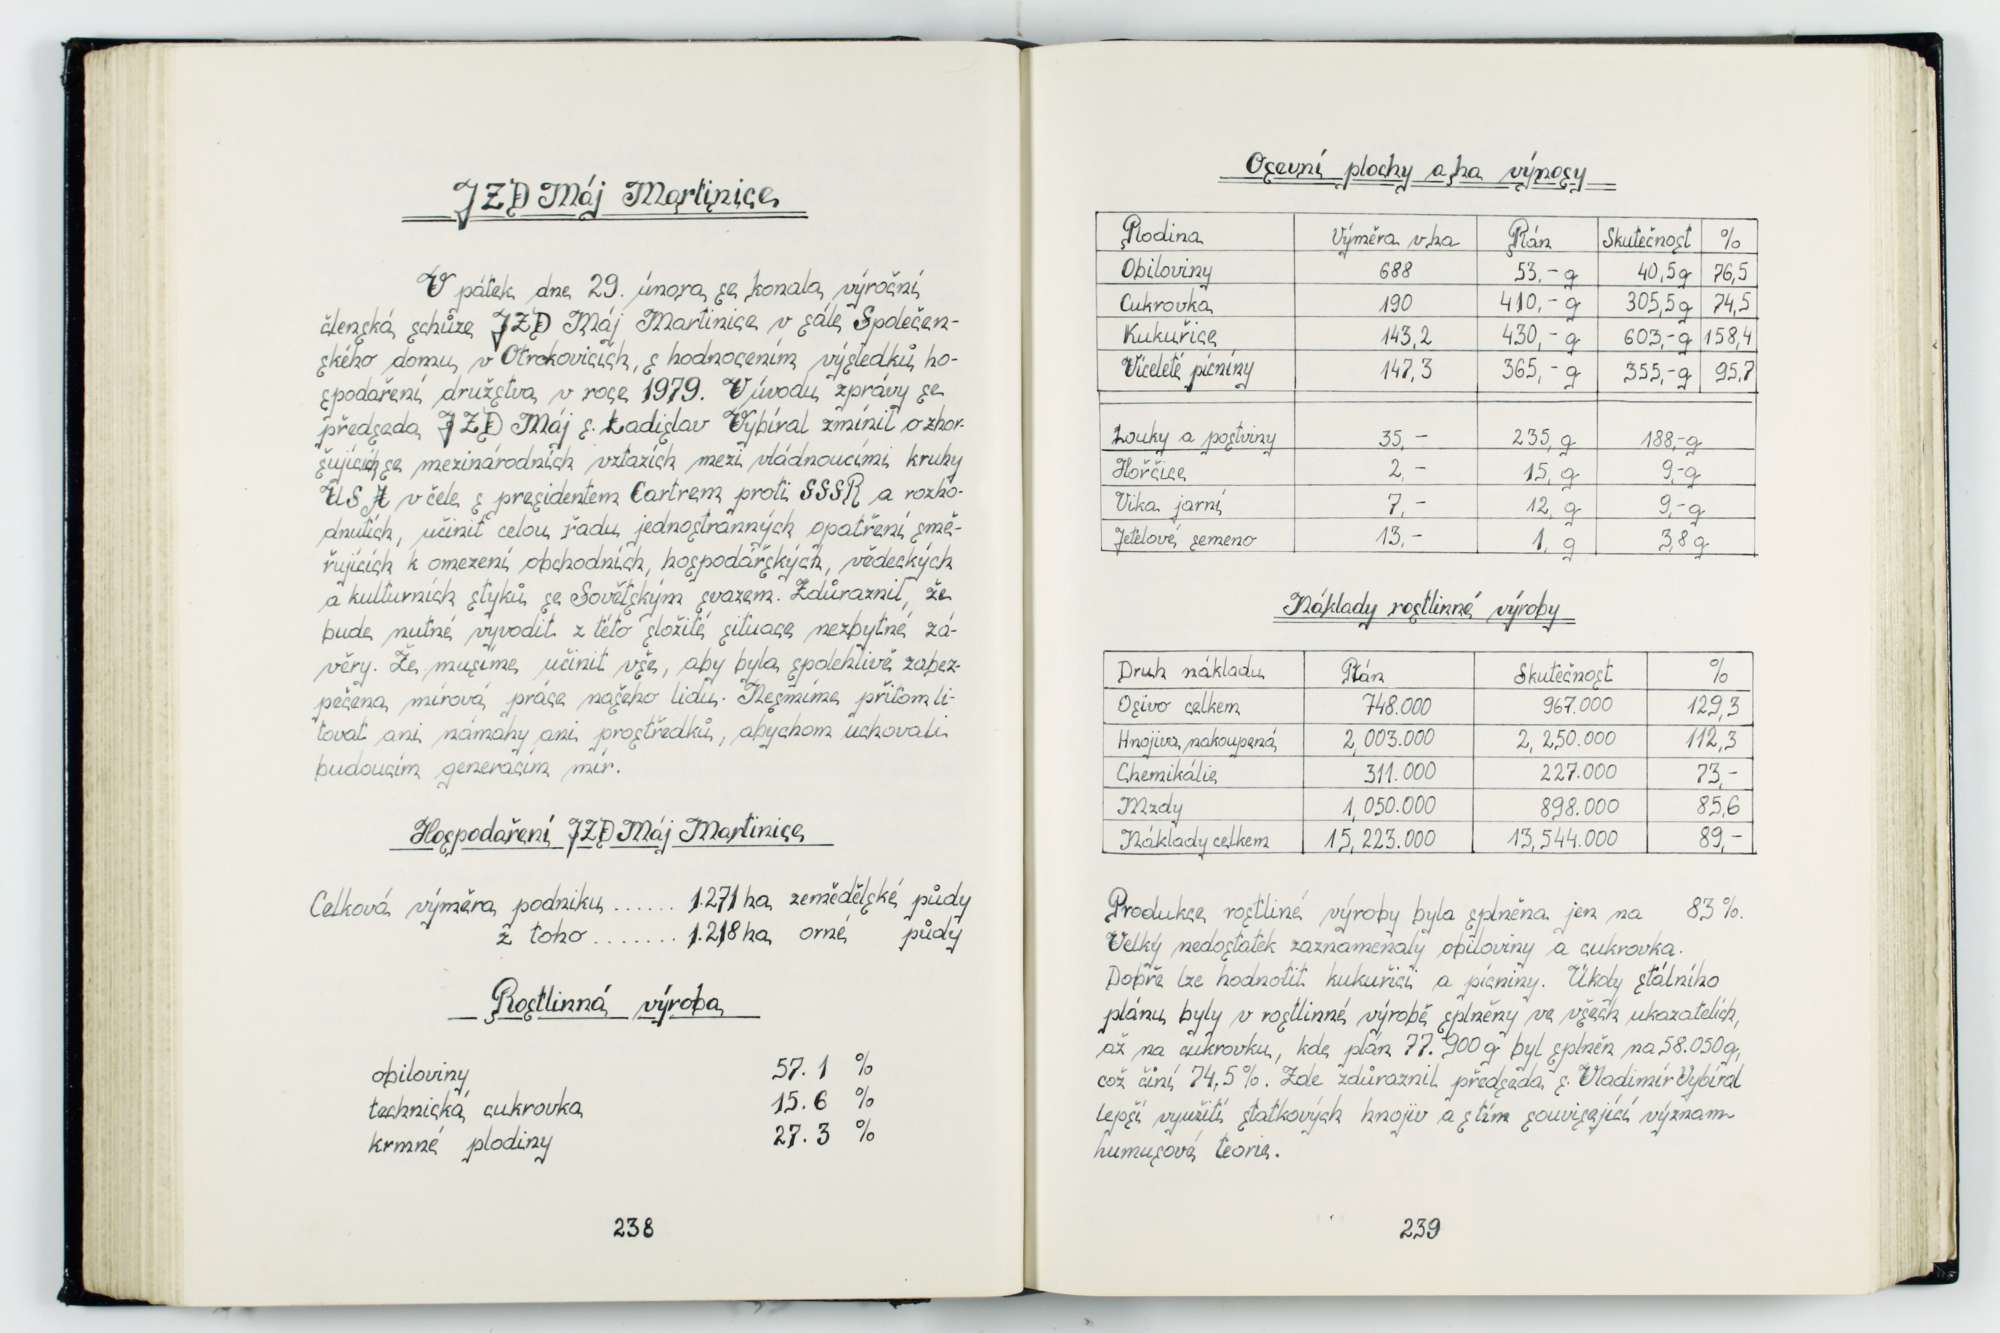 JZD Máj Martinice
V pátek dne 29. února se konala výroční
členská schůze JZD Máj Martinice v sále Společen-
ského domu v Otrokovicích, s hodnocením výsledků ho-
spodaření družstva v roce 1979. V úvodu zprávy se
předseda JZD Máj s. Ladislav Vybíral zmínil o zhor-
šujících se mezinárodních vztazích mezi vládnoucími kruhy
USA v čele s presidentem Cartrem proti SSSR a rozho-
dnutích, učinit celou řadu jednostranných opatření smě-
řujících k omezení obchodních, hospodářských, vědeckých
a kulturních styků se Sovětským svazem. Zdůraznil, že
bude nutné vyvodit z této složité situace nezbytné zá-
věry. Že musíme učinit vše, aby byla spolehlivě zabez-
pečena mírová práce našeho lidu. Nesmíme přitom li-
tovat ani námahy ani prostředků, abychom uchovali
budoucím generacím mír.
Hospodaření JZD Máj Martinice
Celková výměra podniku ...... 1.271 ha zemědělské půdy
z toho ....... 1.218 ha orné půdy
Rostlinná výroba
obiloviny 57.1 %
technická cukrovka 15.6 %
krmné plodiny 27.3 %
238
Osevní plochy a ha výnosy
Plodina Výměra v ha Plán Skutečnost %
Obiloviny 688 53,- q 40,5 q 76,5
Cukrovka 190 410,- q 305,5 q 74,5
Kukuřice 143,2 430,- q 603,- q 158,4
Víceleté pícniny 147,3 365,- q 355,- q 95,7
Louky a pastviny 35,- 235, q 188,- q
Hořčice 2,- 15, q 9,- q
Vika jarní 7,- 12, q 9,- q
Jetelové semeno 13,- 1, q 3,8 q
Náklady rostlinné výroby
Druh nákladu Plán Skutečnost %
Osivo celkem 748.000 967.000 129,3
Hnojiva nakoupená 2,003.000 2,250.000 112,3
Chemikálie 311.000 227.000 73,-
Mzdy 1,050.000 898.000 85,6
Náklady celkem 15,223.000 13,544.000 89,-
Produkce rostliné výroby byla splněna jen na 83 %.
Velký nedostatek zaznamenaly obiloviny a cukrovka.
Dobře lze hodnotit kukuřici a pícniny. Úkoly státního
plánu byly v rostlinné výrobě splněny ve všech ukazatelích,
až na cukrovku, kde plán 77.900 q byl splněn na 58.050 q,
což činí 74,5 %. Zde zdůraznil předseda s. Vladimír Vybíral
lepší využití statkových hnojiv a s tím související význam
humusové teorie.
239